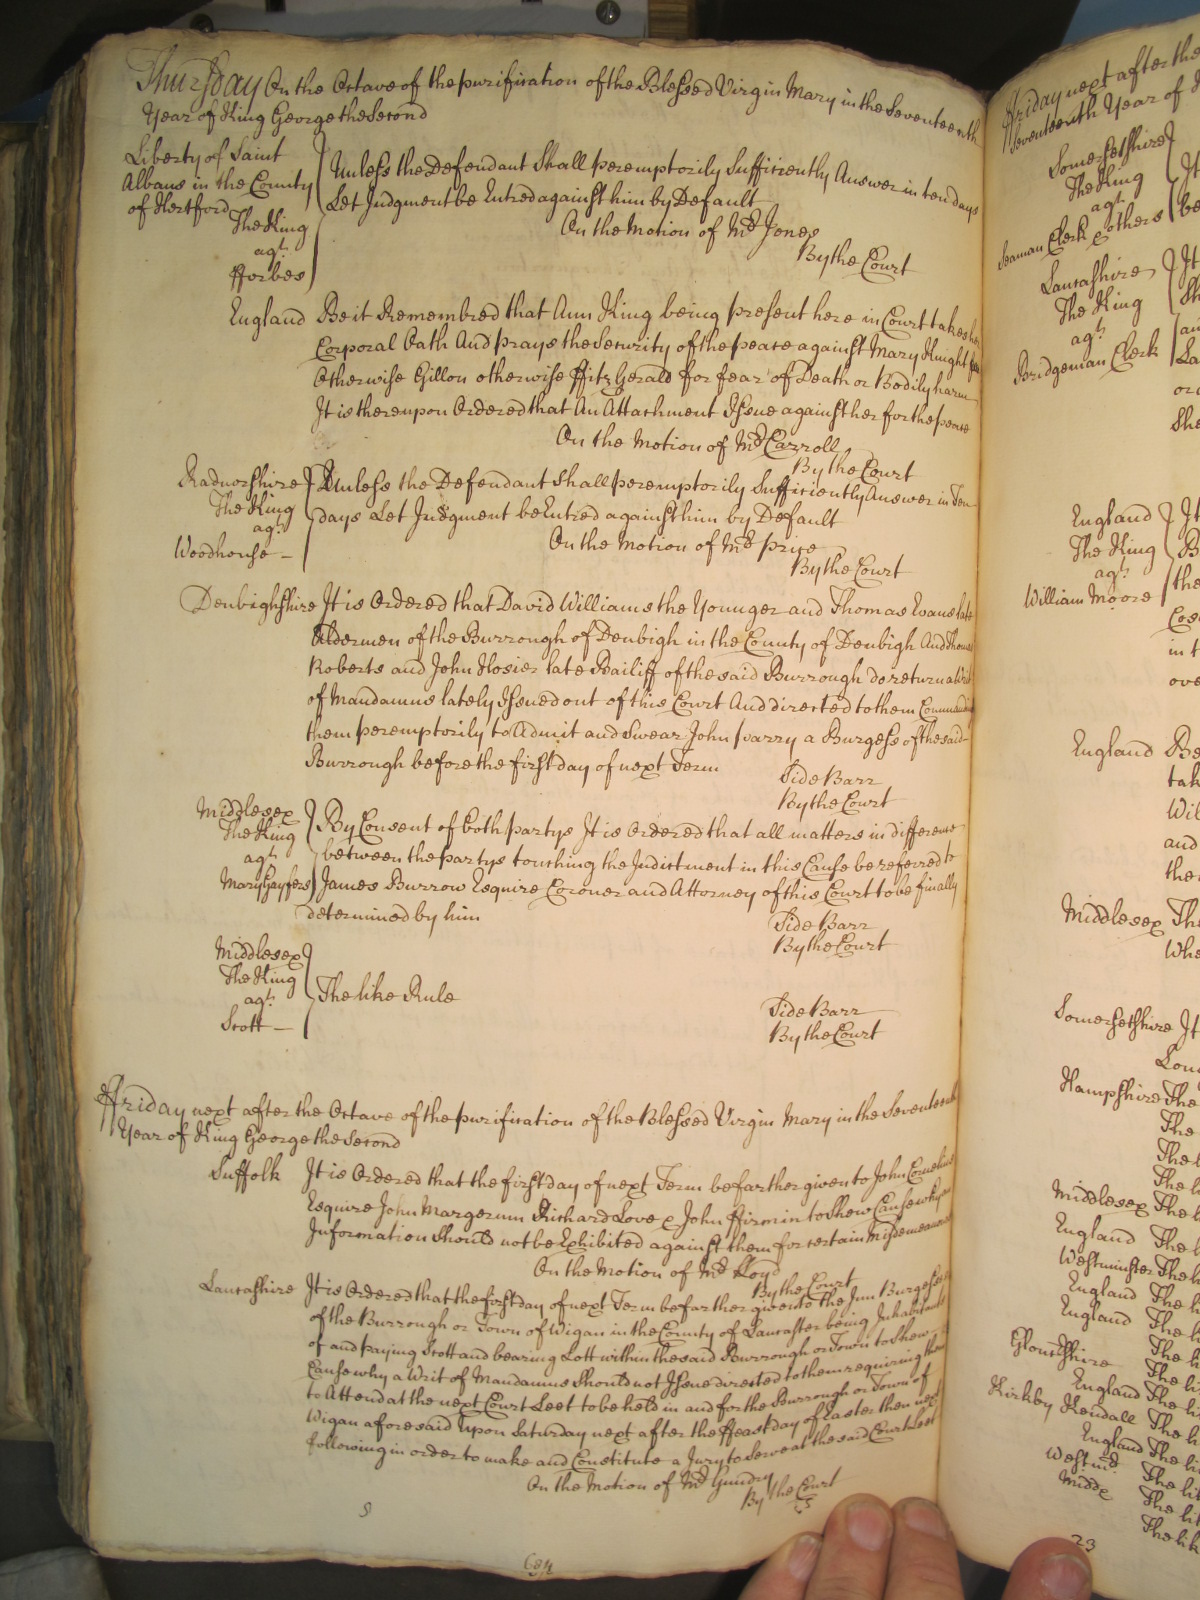 Thursday On the Octave of the purification of the Blessed Virgin Mary in the Seventeenth
Year of King George the Second
Liberty of Saint
Albans in the County
of Hertford
The King
agt.
Fforbes
Unless the Defendant Shall peremptorily Sufficiently Answer in ten days
Let Judgment be Entred against him by Default
On the Motion of Mr. Jones
By the Court
England Be it Remembred that Ann King being present here in Court takes her
Corporal Oath And prays the Security of the peace against Mary Knight
Otherwise Gillon otherwise ffitz Gerald for fear of Death or Bodily harm
It is thereupon Ordered that An Attachment Issue against her for the peace
On the Motion of Mr. Carroll
By the Court
Radnorshire
The King
agt.
Woodhouse
Unless the Defendant shall peremptorily Sufficiently Answer in Ten
days Let Judgment be Entred against him by Default
On the Motion of Mr. price
By the Court
Denbighshire It is Ordered that David Williams the Younger and Thomas Evans late
Aldermen of the Burrough of Denbigh in the County of Denbigh And Thomas
Roberts and John Hosier late Bailiff of the said Burrough do return a Writ
of Mandamus lately Issued out of this Court And directed to them Commanding
them peremptorily to Admit and Swear John parry a Burgess of the said
Burrough before the first day of next Term
Side Barr
By the Court
Middlesex
The King
agt.
Mary Hayfers
By Consent of both partys It is Ordered that all matters in difference
between the partys touching the Indictment in this Cause be referred to
James Burrow Esquire Coroner and Attorney of this Court to be finally
determined by him
Side Barr
By the Court
Middlesex
The King
agt.
Scott
The like Rule
Side Barr
By the Court
Ffriday next after the Octave of the purification of the Blessed Virgin Mary in the Seventeenth
Year of King George the Second
Suffolk It is Ordered that the first day of next Term be farther given to John Cornelius
Esquire John Margerum Richard Love & John ffirmin to Shew Cause why an
Information Should not be Exhibited against them for certain Misdemeanors
On the Motion of Mr. Lloyd
By the Court
Lancashire It is Ordered that the first day of next Term be farther given to the Inn Burgesses
of the Burrough or Town of Wigan in the County of Lancaster being Inhabitants
of and paying Scott and bearing Lott within the said Burrough or Town to Shew
Cause why a Writ of Mandamus Should not Issue directed to them requiring them
to Attend at the next Court Leet to be held in and for the Burrough or Town of
Wigan aforesaid Upon Saturday next after the ffeast day of Easter then next
following in order to make and Constitute a Jury to Serve at the said Court Leet
On the Motion of Mr. Gundry
By the Court
684
Ffriday next after the
Seventeenth Year of K
Somersetshire
The King
agt.
Seaman Clerk & others
It
be
Lancashire
The King
agt.
Bridgeman Clerk
It
Sh
an
La
or
She
England
The King
agt.
William Moore
It
B
the
Cos
in t
ove
England Be
tak
Wil
and
the
Middlesex Th
Whe
Somersetshire It
Lon
Hampshire The
The
The l
The li
Middlesex The l
England The l
Westminster The l
England The li
England The li
Gloucestershire The li
England The li
Kirkby Kendall The li
England The li
Westmd. The lik
Middx The li
The lik
23